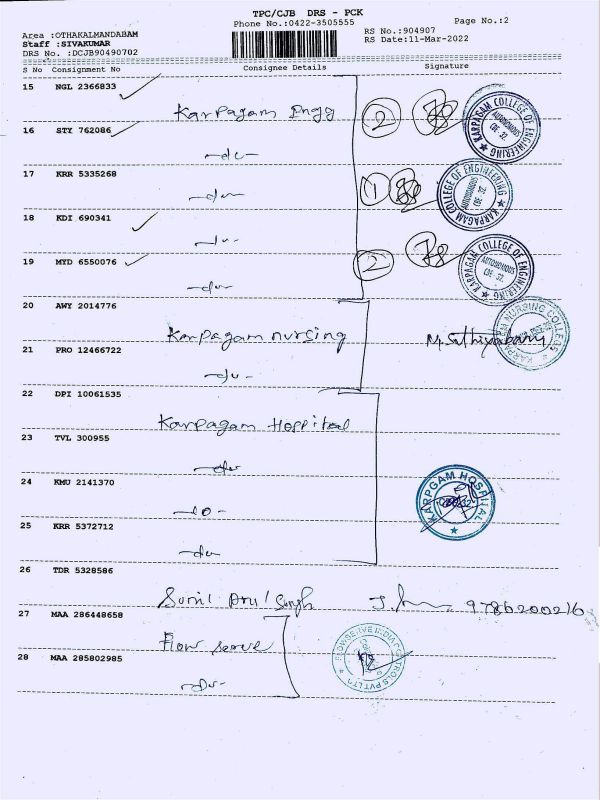 TPC/CJB DRS - PCK
Phone No.:0422-3505555
Page No.:2
Area :OTHAKALMANDABAM
Staff :SIVAKUMAR
DRS No. :DCJB90490702
RS No.:904907
RS Date:11-Mar-2022
S No Consignment No Consignee Details Signature
15 NGL 2366833
Karpagam Engg
2
KARPAGAM COLLEGE OF ENGINEERING
AUTONOMOUS
CBE-32
16 STX 762086
-do-
17 KRR 5335268
-do-
1
KARPAGAM COLLEGE OF ENGINEERING
AUTONOMOUS
CBE-32
18 KDI 690341
-do-
19 MYD 6550076
-do-
2
KARPAGAM COLLEGE OF ENGINEERING
AUTONOMOUS
CBE-32
20 AWY 2014776
Karpagam nursing
KARPAGAM NURSING COLLEGE
21 PRO 12466722
-do-
22 DPI 10061535
Karpagam Hospital
23 TVL 300955
-do-
24 KMU 2141370
-do-
KARPGAM HOSPITAL
25 KRR 5372712
-do-
26 TDR 5328586
Sunil Arul Singh
9786200216
27 MAA 286448658
Flow serve
FLOWSERVE INDIA CONTROLS PVT LTD
28 MAA 285802985
-Do-